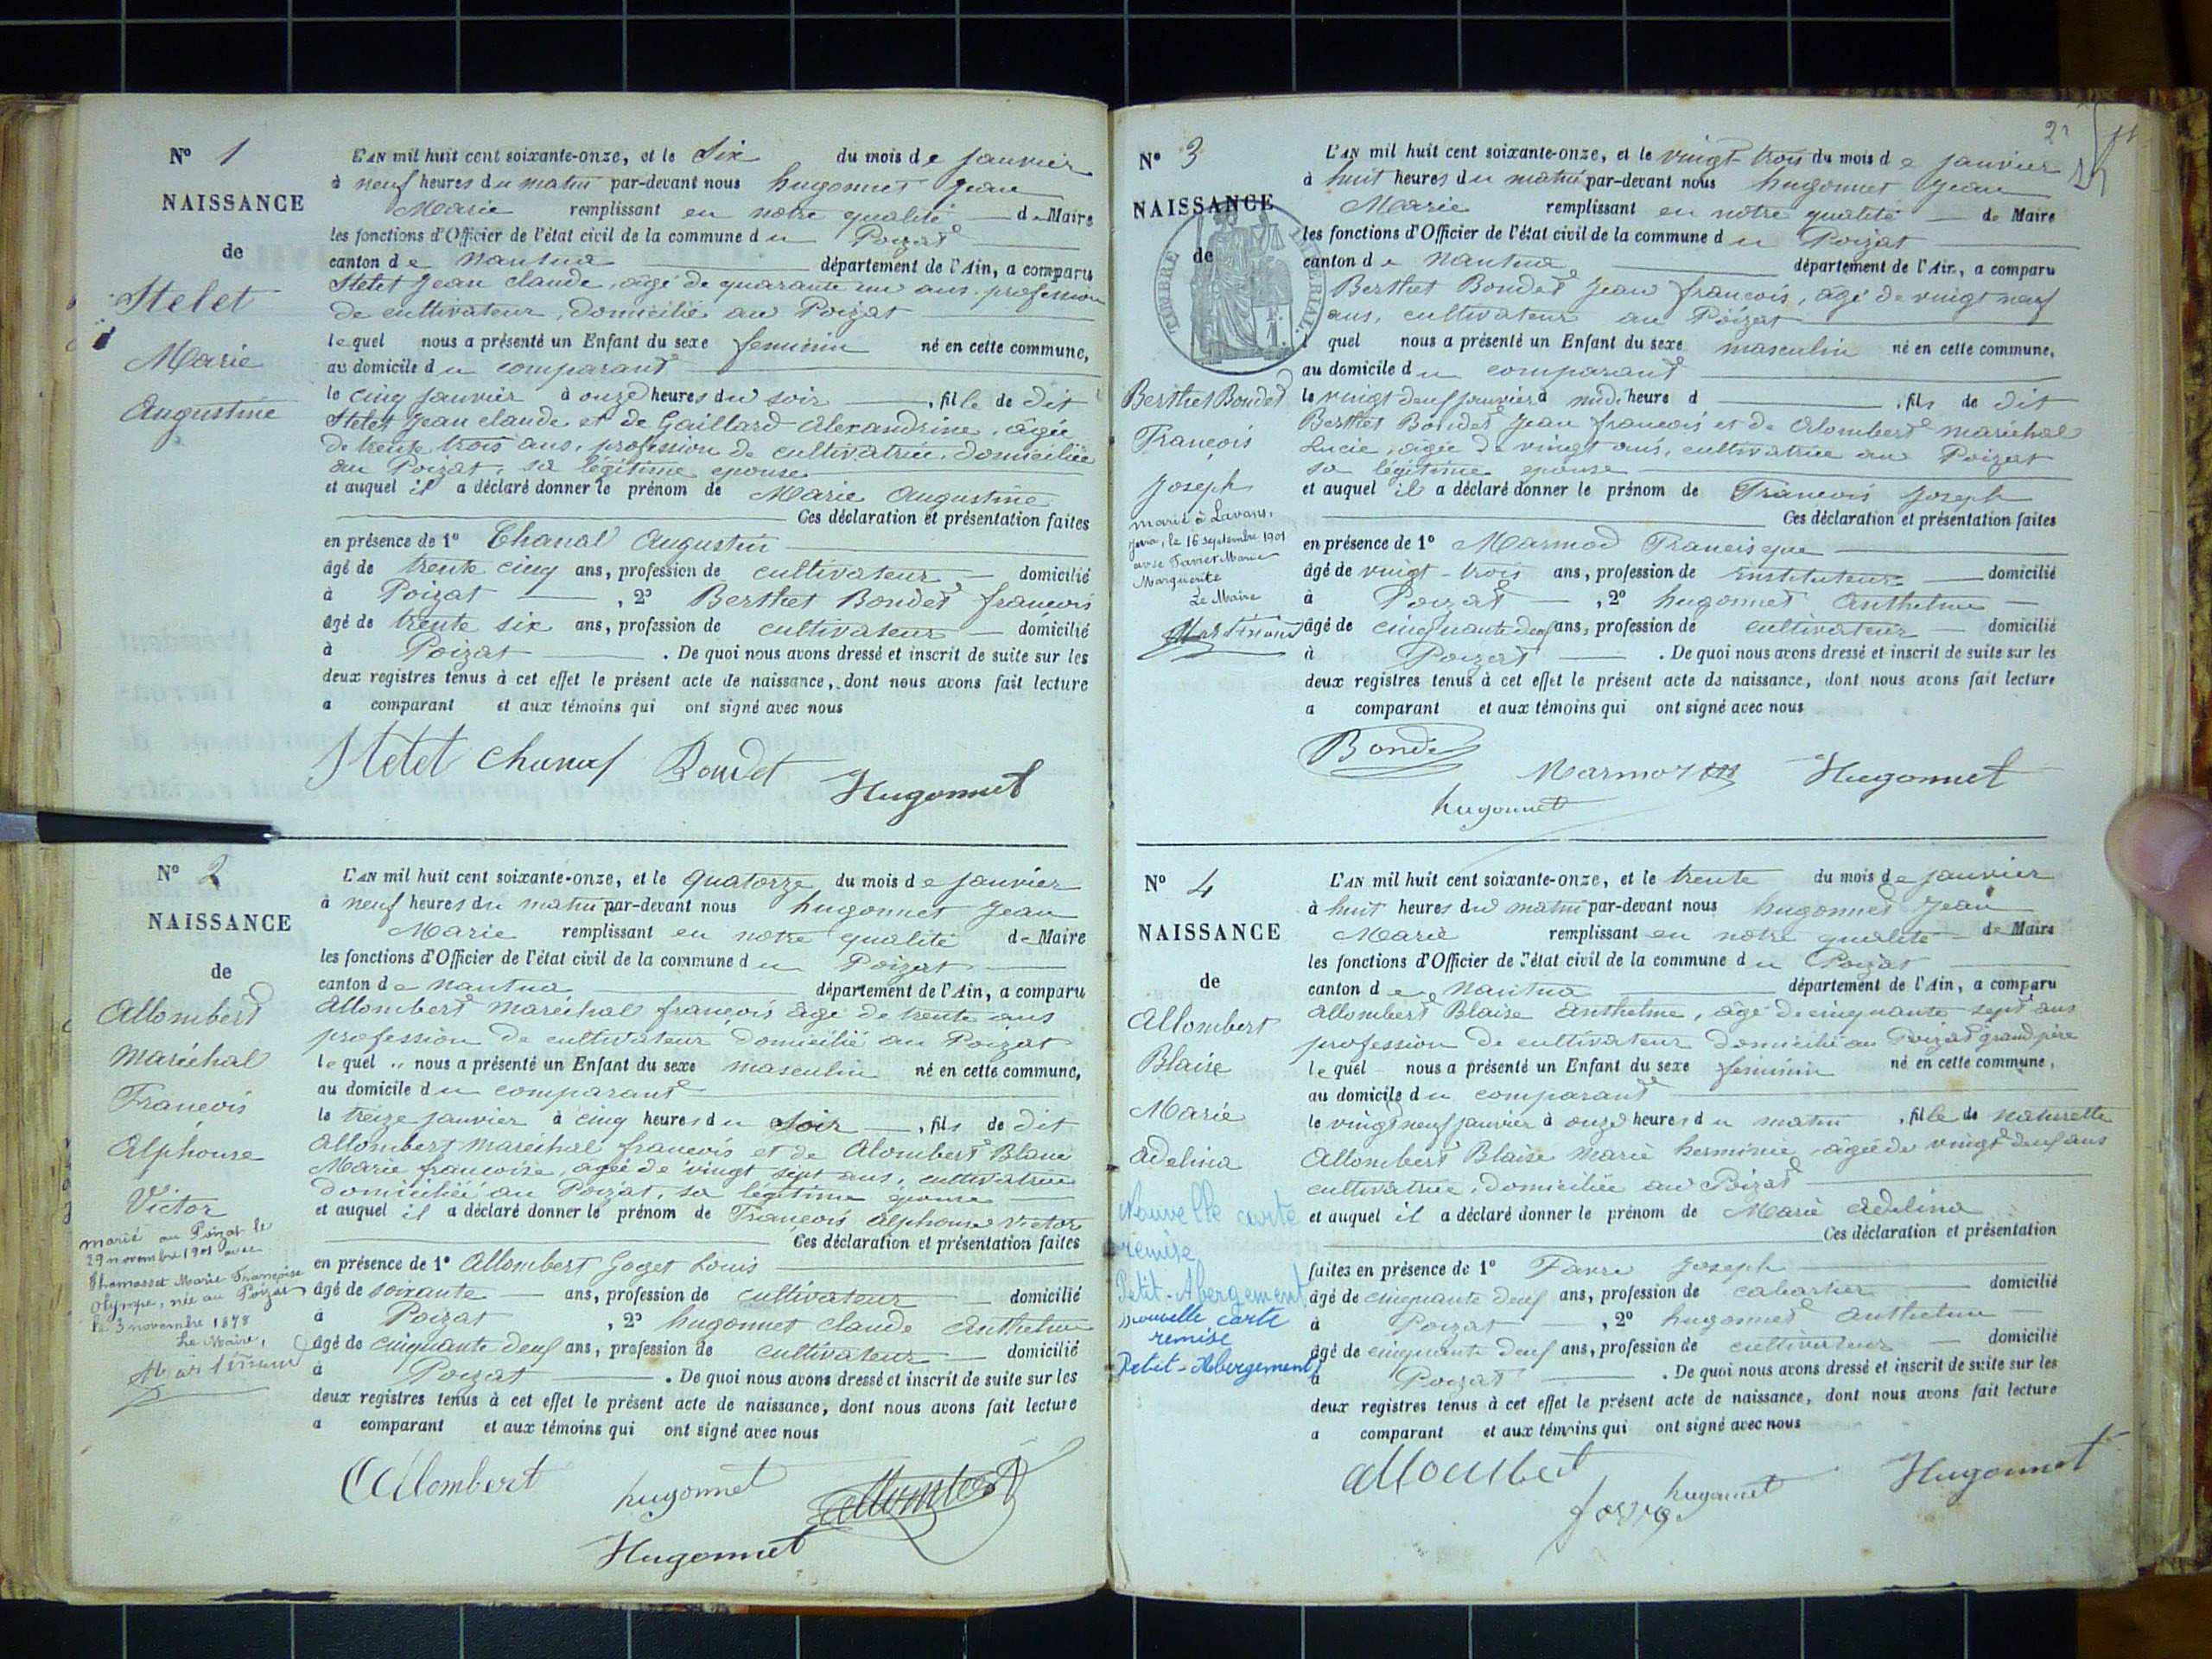 N° 1
NAISSANCE
de
Stelet
Marie
Augustine
L'AN mil huit cent soixante-onze, et le Six du mois de janvier
à neuf heures du matin par-devant nous hugonnet Jean
Marie remplissant en notre qualité de Maire
les fonctions d'Officier de l'état civil de la commune du Poizat
canton de Nantua département de l'Ain, a comparu
Stelet Jean claude, âgé de quarante un ans, profession
de cultivateur, domicilié au Poizat
lequel nous a présenté un Enfant du sexe feminin né en cette commune,
au domicile du comparant
le cinq janvier à onze heures du soir, fille de dit
Stelet Jean claude et de Gaillard Alexandrine, âgée
de trente trois ans, profession de cultivatrice, domiciliée
au Poizat, sa légitime epouse
et auquel il a déclaré donner le prénom de Marie Augustine
Ces déclaration et présentation faites
en présence de 1° Chanal Augustin
âgé de trente cinq ans, profession de cultivateur domicilié
à Poizat, 2° Berthet Bondet françois
âgé de trente six ans, profession de cultivateur domicilié
à Poizat. De quoi nous avons dressé et inscrit de suite sur les
deux registres tenus à cet effet le présent acte de naissance, dont nous avons fait lecture
a comparant et aux témoins qui ont signé avec nous
Stelet Chanal Bondet Hugonnet
N° 2
NAISSANCE
de
Allombert
Maréchal
François
Alphonse
Victor
marié au Poizat le
29 novembre 1901 avec
Thomasset Marie Françoise
Olympe, née au Poizat
le 3 novembre 1878
Le Maire,
L'AN mil huit cent soixante-onze, et le quatorze du mois de janvier
à neuf heures du matin par-devant nous hugonnet Jean
Marie remplissant en notre qualité de Maire
les fonctions d'Officier de l'état civil de la commune du Poizat
canton de Nantua département de l'Ain, a comparu
Allombert Maréchal françois âgé de trente ans
profession de cultivateur domicilié au Poizat
lequel nous a présenté un Enfant du sexe masculin né en cette commune,
au domicile du comparant
le treize janvier à cinq heures du soir, fils de dit
Allombert Maréchal françois et de Alombert Blanc
Marie françoise, agée de vingt sept ans, cultivatrice
domiciliée au Poizat, sa légitime epouse
et auquel il a déclaré donner le prénom de François Alphonse Victor
Ces déclaration et présentation faites
en présence de 1° Allombert Goget Louis
âgé de soixante ans, profession de cultivateur domicilié
à Poizat, 2° hugonnet claude Anthelme
âgé de cinquante deux ans, profession de cultivateur domicilié
à Poizat. De quoi nous avons dressé et inscrit de suite sur les
deux registres tenus à cet effet le présent acte de naissance, dont nous avons fait lecture
a comparant et aux témoins qui ont signé avec nous
Allombert hugonnet Allombert
Hugonnet
N° 3
NAISSANCE
de
TIMBRE IMPÉRIAL
Berthet Bondet
François
Joseph
marié à Lavans,
Jura, le 16 septembre 1901
avec Tavier Marie
Marguerite
Le Maire
L'AN mil huit cent soixante-onze, et le vingt-trois du mois de janvier
à huit heures du matin par-devant nous hugonnet Jean
Marie remplissant en notre qualité de Maire
les fonctions d'Officier de l'état civil de la commune du Poizat
canton de Nantua département de l'Ain, a comparu
Berthet Bondet Jean françois, âgé de vingt neuf
ans, cultivateur au Poizat
quel nous a présenté un Enfant du sexe masculin né en cette commune,
au domicile du comparant
le vingt deux janvier à midi heure d, fils de dit
Berthet Bondet Jean françois et de Alombert maréchal
Lucie, agée de vingt ans, cultivatrice au Poizat
sa légitime epouse
et auquel il a déclaré donner le prénom de François Joseph
Ces déclaration et présentation faites
en présence de 1° Marmod Francisque
âgé de vingt-trois ans, profession de instituteur domicilié
à Poizat, 2° hugonnet Anthelme
âgé de cinquante deux ans, profession de cultivateur domicilié
à Poizat. De quoi nous avons dressé et inscrit de suite sur les
deux registres tenus à cet effet le présent acte de naissance, dont nous avons fait lecture
a comparant et aux témoins qui ont signé avec nous
Bondet
Marmod Hugonnet
hugonnet
N° 4
NAISSANCE
de
Allombert
Blaise
Marie
Adelina
Nouvelle carte
remise
Petit-Abergement
nouvelle carte
remise
Petit-Abergement
L'AN mil huit cent soixante-onze, et le trente du mois de janvier
à huit heures du matin par-devant nous hugonnet Jean
Marie remplissant en notre qualité de Maire
les fonctions d'Officier de l'état civil de la commune du Poizat
canton de Nantua département de l'Ain, a comparu
Allombert Blaise Anthelme, âgé de cinquante sept ans
profession de cultivateur domicilié au Poizat grand père
lequel nous a présenté un Enfant du sexe feminin né en cette commune,
au domicile du comparant
le vingt neuf janvier à onze heures du matin, fille de naturelle
Allombert Blaise Marie herminie, agée de vingt deux ans
cultivatrice, domiciliée au Poizat
et auquel il a déclaré donner le prénom de Marie Adelina
Ces déclaration et présentation
faites en présence de 1° Favre Joseph
âgé de cinquante deux ans, profession de cabartier domicilié
à Poizat, 2° hugonnet Anthelme
âgé de cinquante deux ans, profession de cultivateur domicilié
à Poizat. De quoi nous avons dressé et inscrit de suite sur les
deux registres tenus à cet effet le présent acte de naissance, dont nous avons fait lecture
a comparant et aux témoins qui ont signé avec nous
Alloubet hugonnet Hugonnet
favre